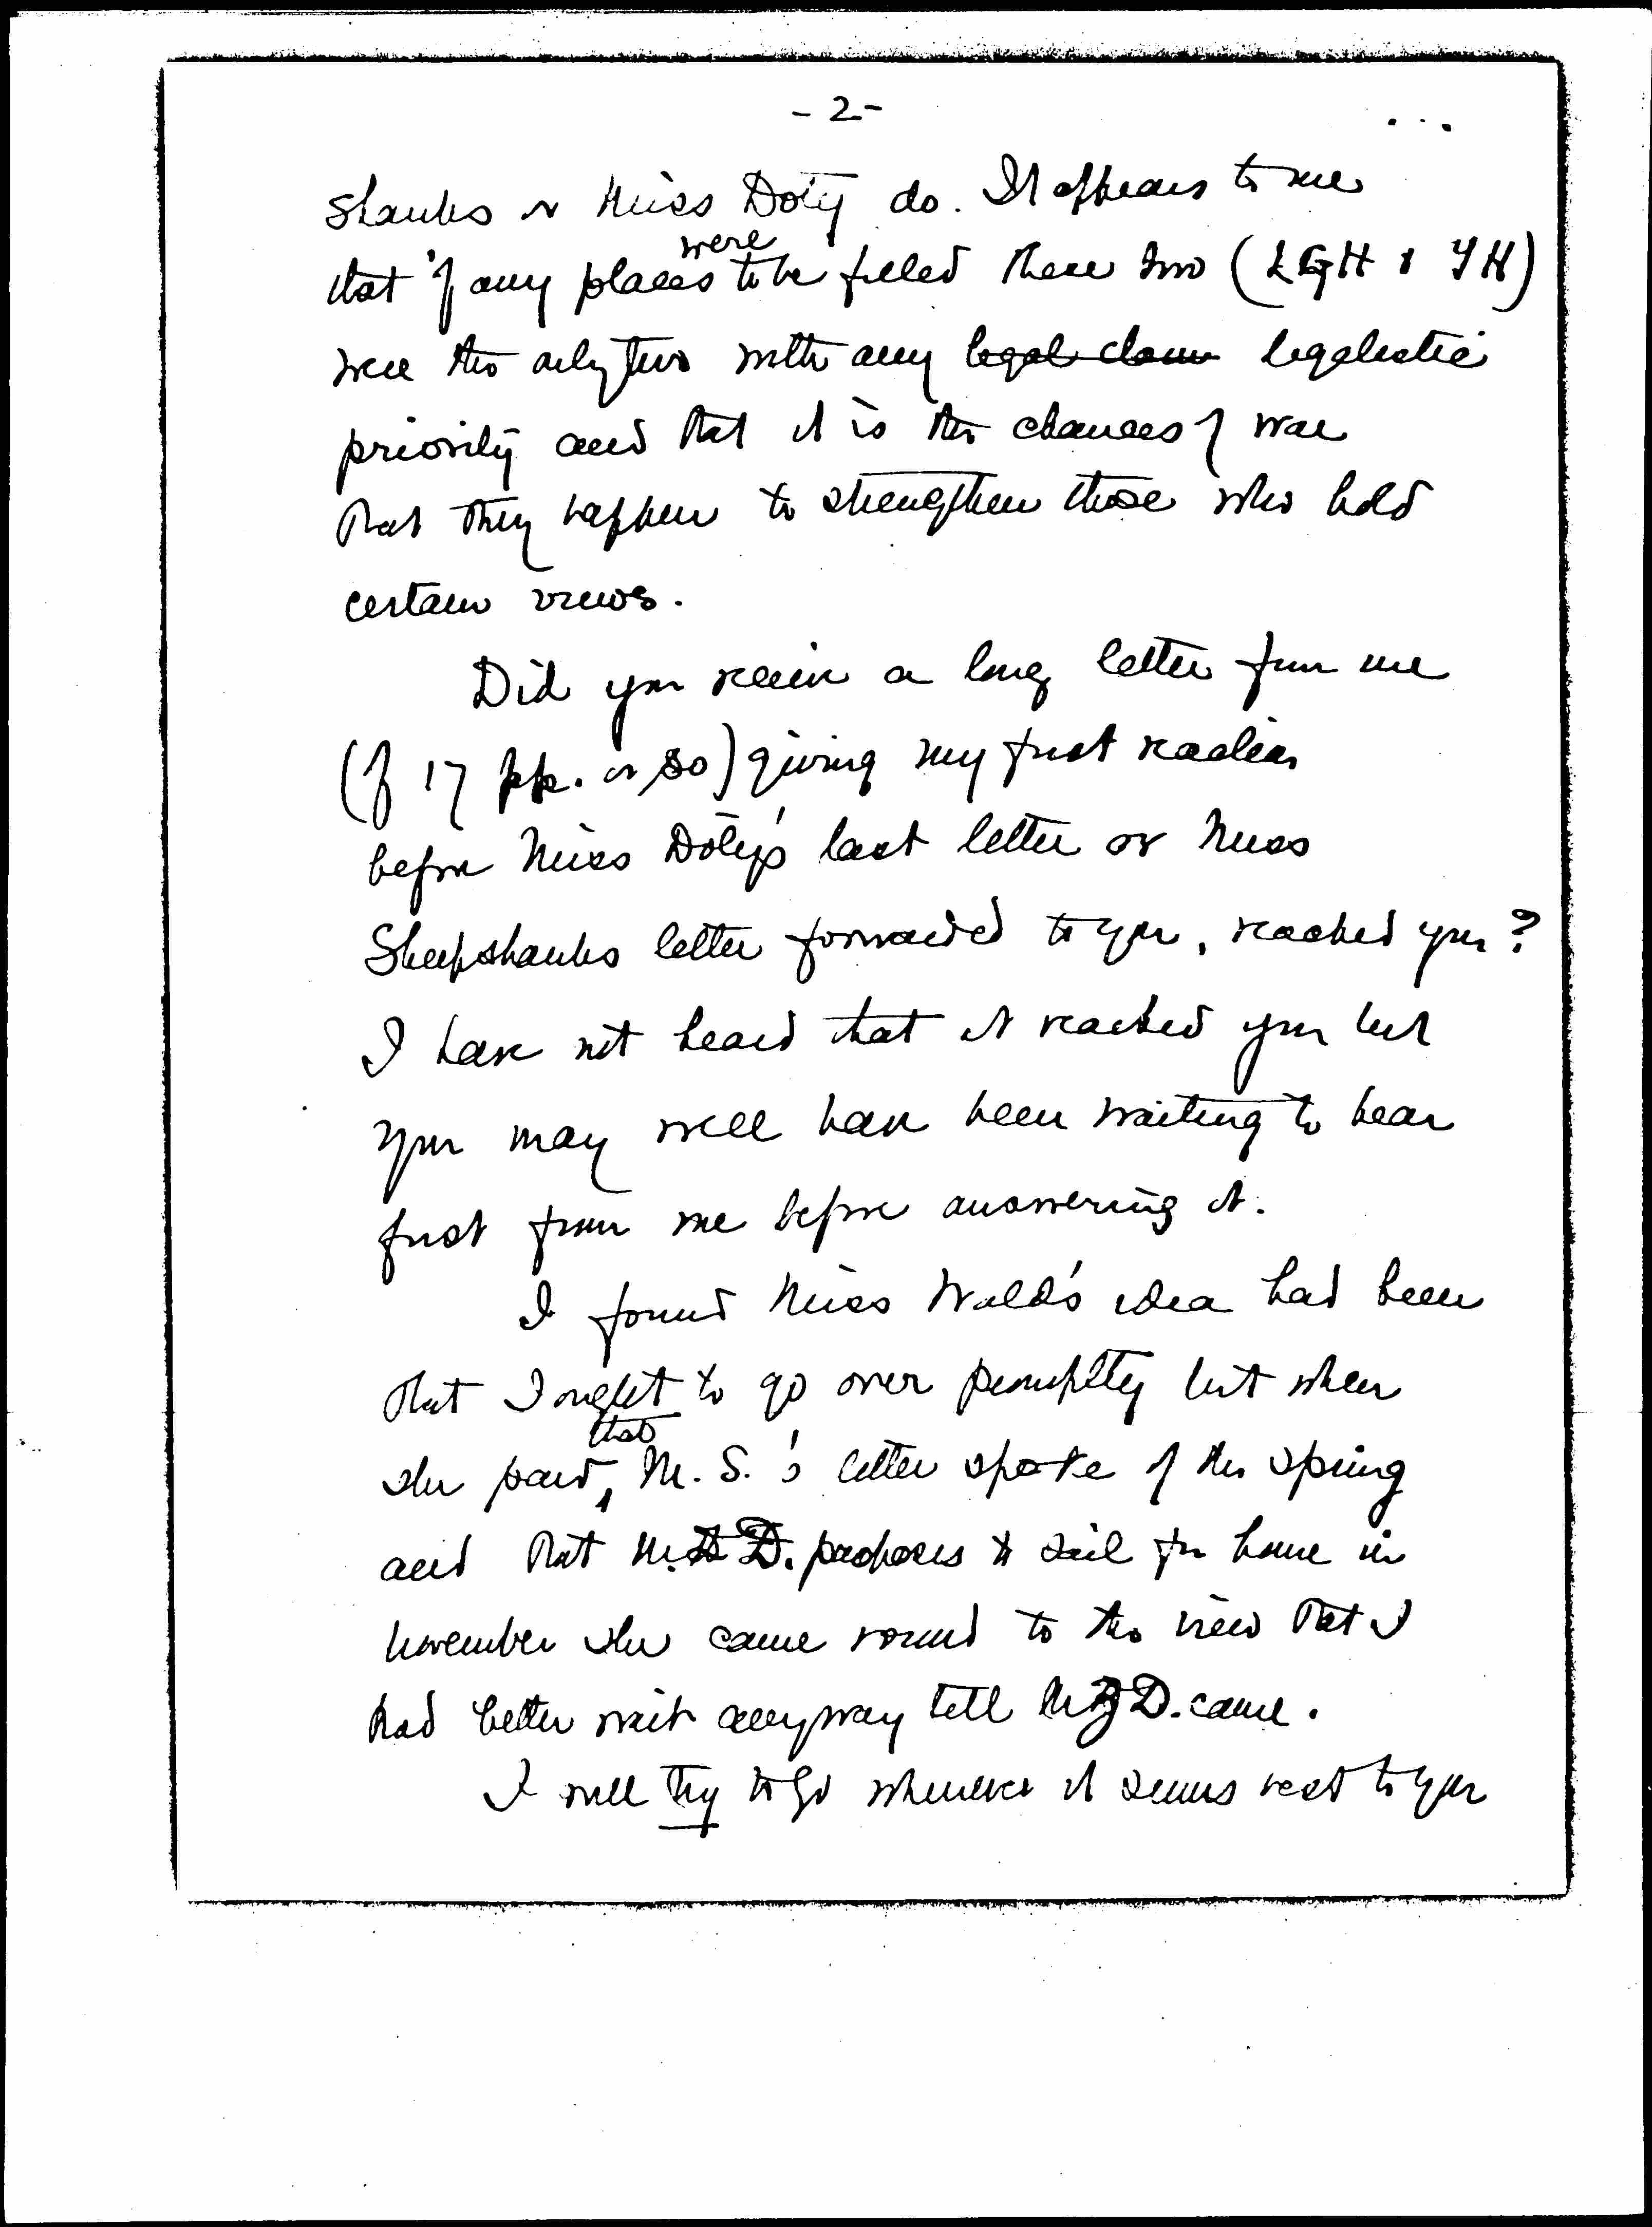 - 2 -
shanks or Miss Doty do. It appears to me
were
that if any places to be filled these two (LGH & YH)
were the only two with any legal claim legalistic
priority and that it is the chances of war
that they happen to strengthen those who hold
certain views.
Did you receive a long letter from me
(of 17 pp. or so) giving my first reaction
before Miss Doty's last letter or Miss
Sheepshanks letter forwarded to you, reached you?
I have not heard that it reached you but
you may well have been waiting to hear
first from me before answering it.
I found Miss Wald's idea had been
that I ought to go over promptly but when
that
she said, M. S.'s letter spoke of the spring
and that M. D. proposes to sail for home in
November she came round to the view that I
had better wait anyway till M D. came.
I will try to go whenever it seems best to you